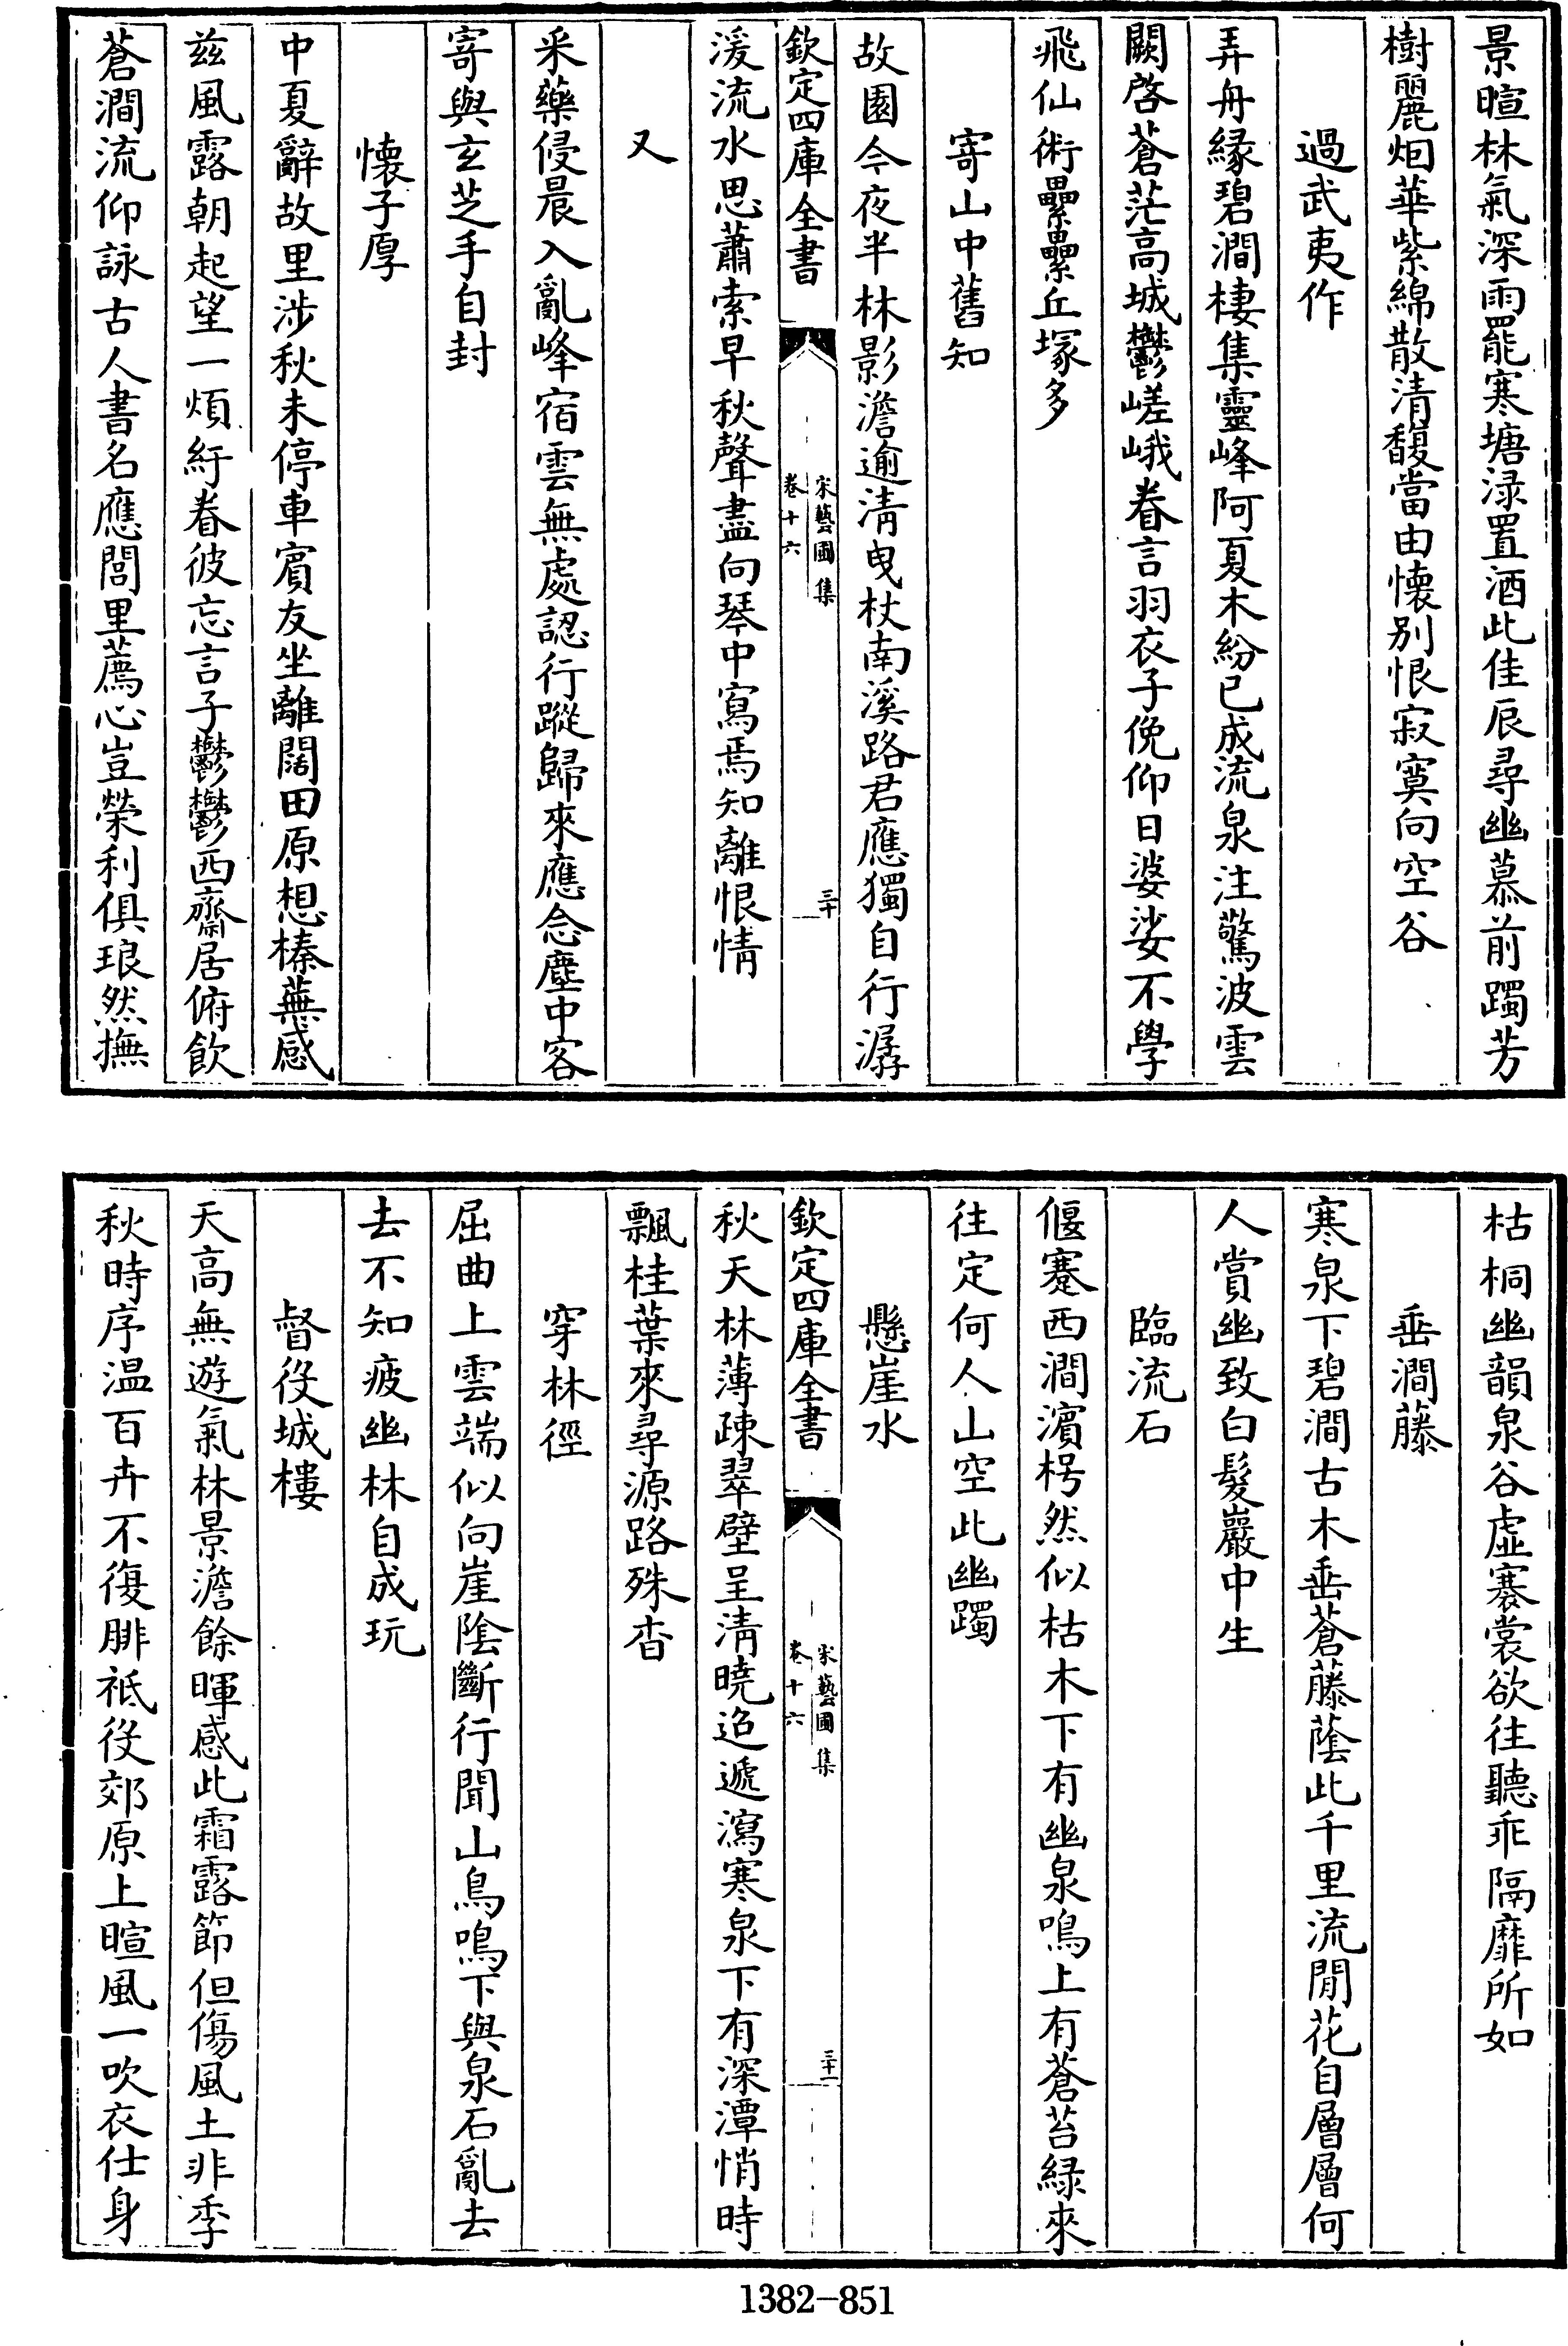 景暄林氣深雨罷寒塘渌置酒此佳辰尋幽慕前躅芳
樹麗烟華紫綿散清馥當由懐别恨寂寞向空谷
過武夷作
弄舟緣碧澗棲集靈峰阿夏木紛已成流泉注驚波雲
闕啓蒼茫高城鬱嵯峨眷言羽衣子俛仰日婆娑不學
飛仙術纍纍丘塚多
寄山中舊知
故園今夜半林影澹逾淸曳杖南溪路君應獨自行潺
欽定四庫全書
宋藝圃集
卷十六
三十
湲流水思蕭索早秋聲盡向琴中寫焉知離恨情
又
采藥侵晨入亂峰宿雲無處認行蹤歸來應念塵中客
寄與玄芝手自封
懐子厚
中夏辭故里涉秋未停車賓友坐離闊田原想榛蕪感
兹風露朝起望一煩紆眷彼忘言子鬱鬱西齋居俯飲
蒼澗流仰詠古人書名應閭里薦心豈榮利俱琅然撫
枯桐幽韻泉谷虛褰裳欲往聽乖隔靡所如
垂澗藤
寒泉下碧澗古木垂蒼藤蔭此千里流閒花自層層何
人賞幽致白髮巖中生
臨流石
偃蹇西澗濵枵然似枯木下有幽泉鳴上有蒼苔緑來
往定何人山空此幽躅
懸崖水
秋天林薄疎翠壁呈淸曉迢遞瀉寒泉下有深潭悄時
欽定四庫全書
宋藝圃集
卷十六
三十一
飄桂葉來尋源路殊杳
穿林徑
屈曲上雲端似向崖陰斷行聞山鳥鳴下與泉石亂去
去不知疲幽林自成玩
督役城樓
天高無遊氣林景澹餘暉感此霜露節但傷風土非季
秋時序温百卉不復腓祗役郊原上暄風一吹衣仕身
1382-851